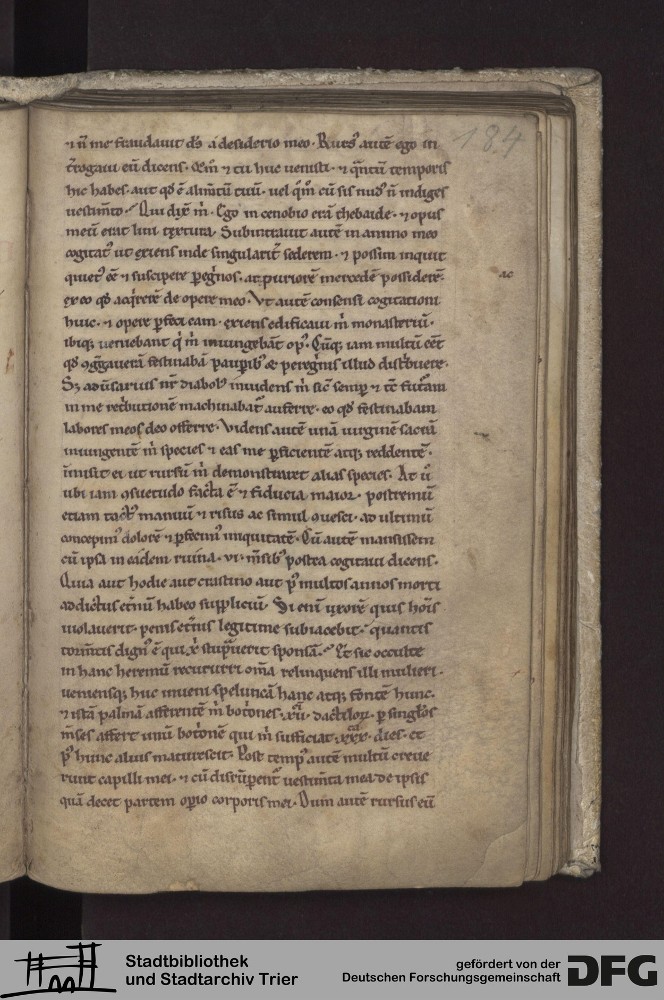 184
⁊ n̄ me fraudauit d̄s a desiderio meo. Rurs᷒ autē ego in
t̄rogaui eū dicens. Qm̄ ⁊ tu huc uenisti. ⁊ q̄ntū temporis
hic habes. aut qd̄ ē alim̄tū tuū. uel q̄m̄ cū sis nud᷒ n̄ indiges
uestim̄to. Qui dix̄ m̄. Ego in cenobio erā thebaide. ⁊ opus
meū erat lini textura. Subintrauit autē in animo meo
cogitat᷒ ut exiens inde singularit̄ sederem. ⁊ possim inquit
quiet᷒ eē ⁊ suscipere p̲egrinos. at puriorē mercedē possiderē.
ac
ex eo qd̄ acq̄rerē de opere meo. Vt autē consensi cogitationi
huic. ⁊ opere p̲feci eam. exiens edificaui m̄ monasteriū.
ibiq; ueniebant q̄ m̄ iniungebāt op᷒. Cūq; iam multū eēt
qd̄ ꝯgregauerā festinabā paup̲ib᷒ & peregrinis illud distribuere.
S; aduersarius nr̄ diabol᷒ inuidens m̄ sic̄ semp̲ ⁊ tc̄ futuram
in me retributionē machinabat᷒ auferre. eo qd̄ festinabam
labores meos deo offerre. Videns autē unā uirginē sacrā
iniungentē m̄ species ⁊ eas me p̲ficientē atq; reddentē.
īmisit ei ut rursū m̄ demonstraret alias species. At ū
ubi iam ꝯsuetudo facta ē ⁊ fiducia maior. postremū
etiam tact᷒ manuū ⁊ risus ac simul ꝯuesci. ad ultimū
concepim᷒ dolorē ⁊ p̲fecim᷒ iniquitatē. Cū autē mansissem
cū ipsa in eadem ruina. vi. m̄sib᷒ postea cogitaui dicens.
Quia aut hodie aut crastino aut p᷒ multos annos morti
addictus et̄nū habeo suppliciū. Si enī uxorē quis hōis
uiolauerit. penis et̄nis legitime subiacebit. quantis
torm̄tis dign᷒ ē qui xp̄i stup̲uerit sponsā. Et sic occulte
in hanc heremū recucurri om̄a relinquens illi mulieri.
ueniensq; huc inueni speluncā hanc atq; fontē hunc.
⁊ istā palmā afferentē m̄ botrones .xii. dactilorū. p̲ singlos
m̄ses affert unū botronē qui m̄ sufficiat .xxx. dies. et
p᷒ hunc alius maturescit. Post temp᷒ autē multū creue
runt capilli mei. ⁊ cū disrūperent᷒ uestim̄ta mea de ipsis
quā decet partem op̲io corporis mei. Dum autē rursus eū
Stadtbibliothek
und Stadtarchiv Trier
gefördert von der
Deutschen Forschungsgemeinschaft
DFG